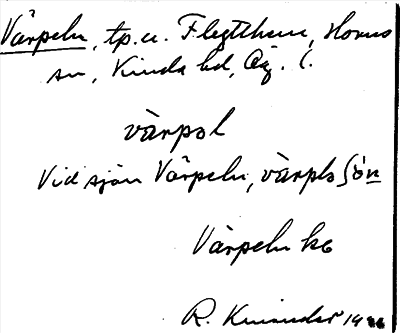 Värpeln, tp. u. Flegthem, Horns
sn, Kinda hd, Ög. l.
värpəl
Vid sjön Värpeln, värpls ʃön
Värpeln ka
R. 1926